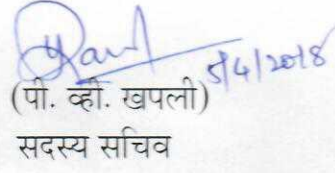 5/4/2018
(पी. व्ही. खपली)
सदस्य सचिव